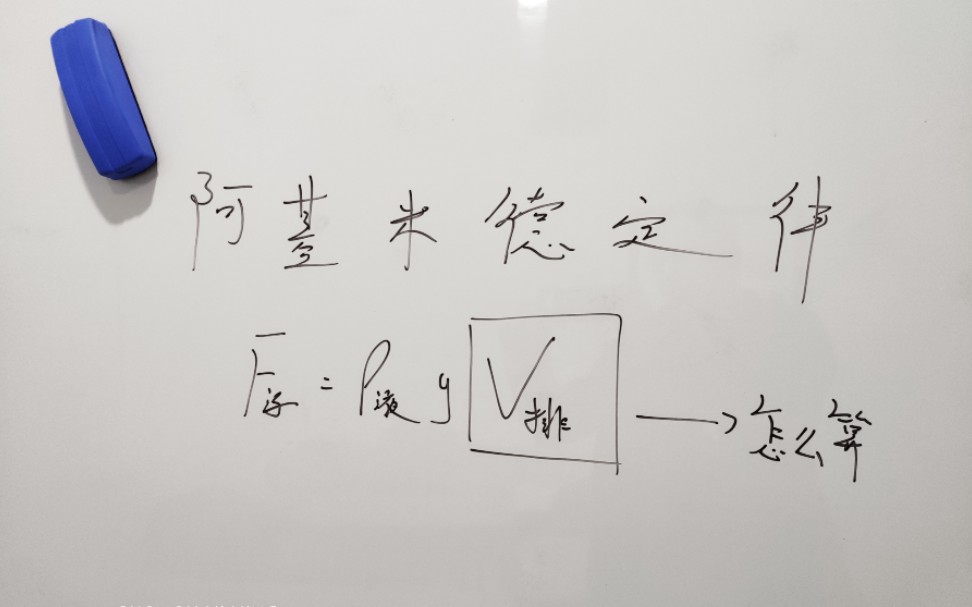 阿基米德定律
F浮 = ρ液 g V排 → 怎么算